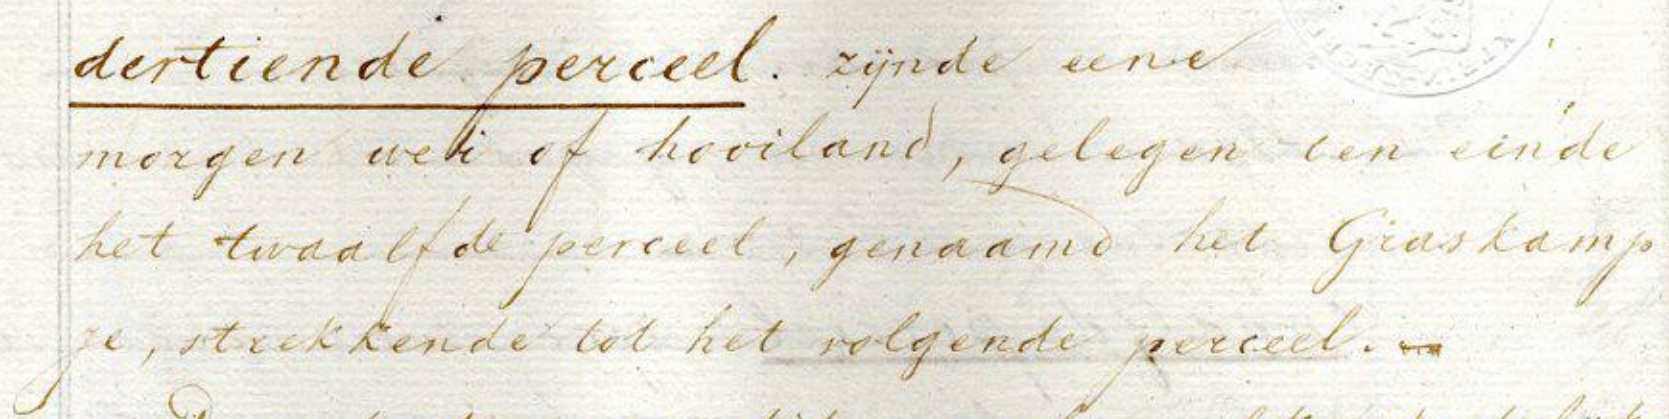 dertiende perceel. zijnde eene
morgen wei of hooiland, gelegen ten einde
het twaalfde perceel, genaamd het Graskamp
je, strekkende tot het volgende perceel.